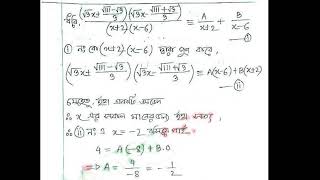 ধরি, (√3x + (√111 - √3)/3)(√3x - (√111 + √3)/3) / (x+2)(x-6) ≡ A/(x+2) + B/(x-6)
① নং কে (x+2)(x-6) দ্বারা গুণ করে,
(√3x + (√111 - √3)/3)(√3x - (√111 + √3)/3) ≡ A(x-6) + B(x+2)
— ⑪
∴ x এর সকল মানের জন্য ইহা সত্য,
∴ ⑪ নং এ x = -2 বসিয়ে পাই
4 = A(-8) + B.0
=> A = 4/-8 = - 1/2